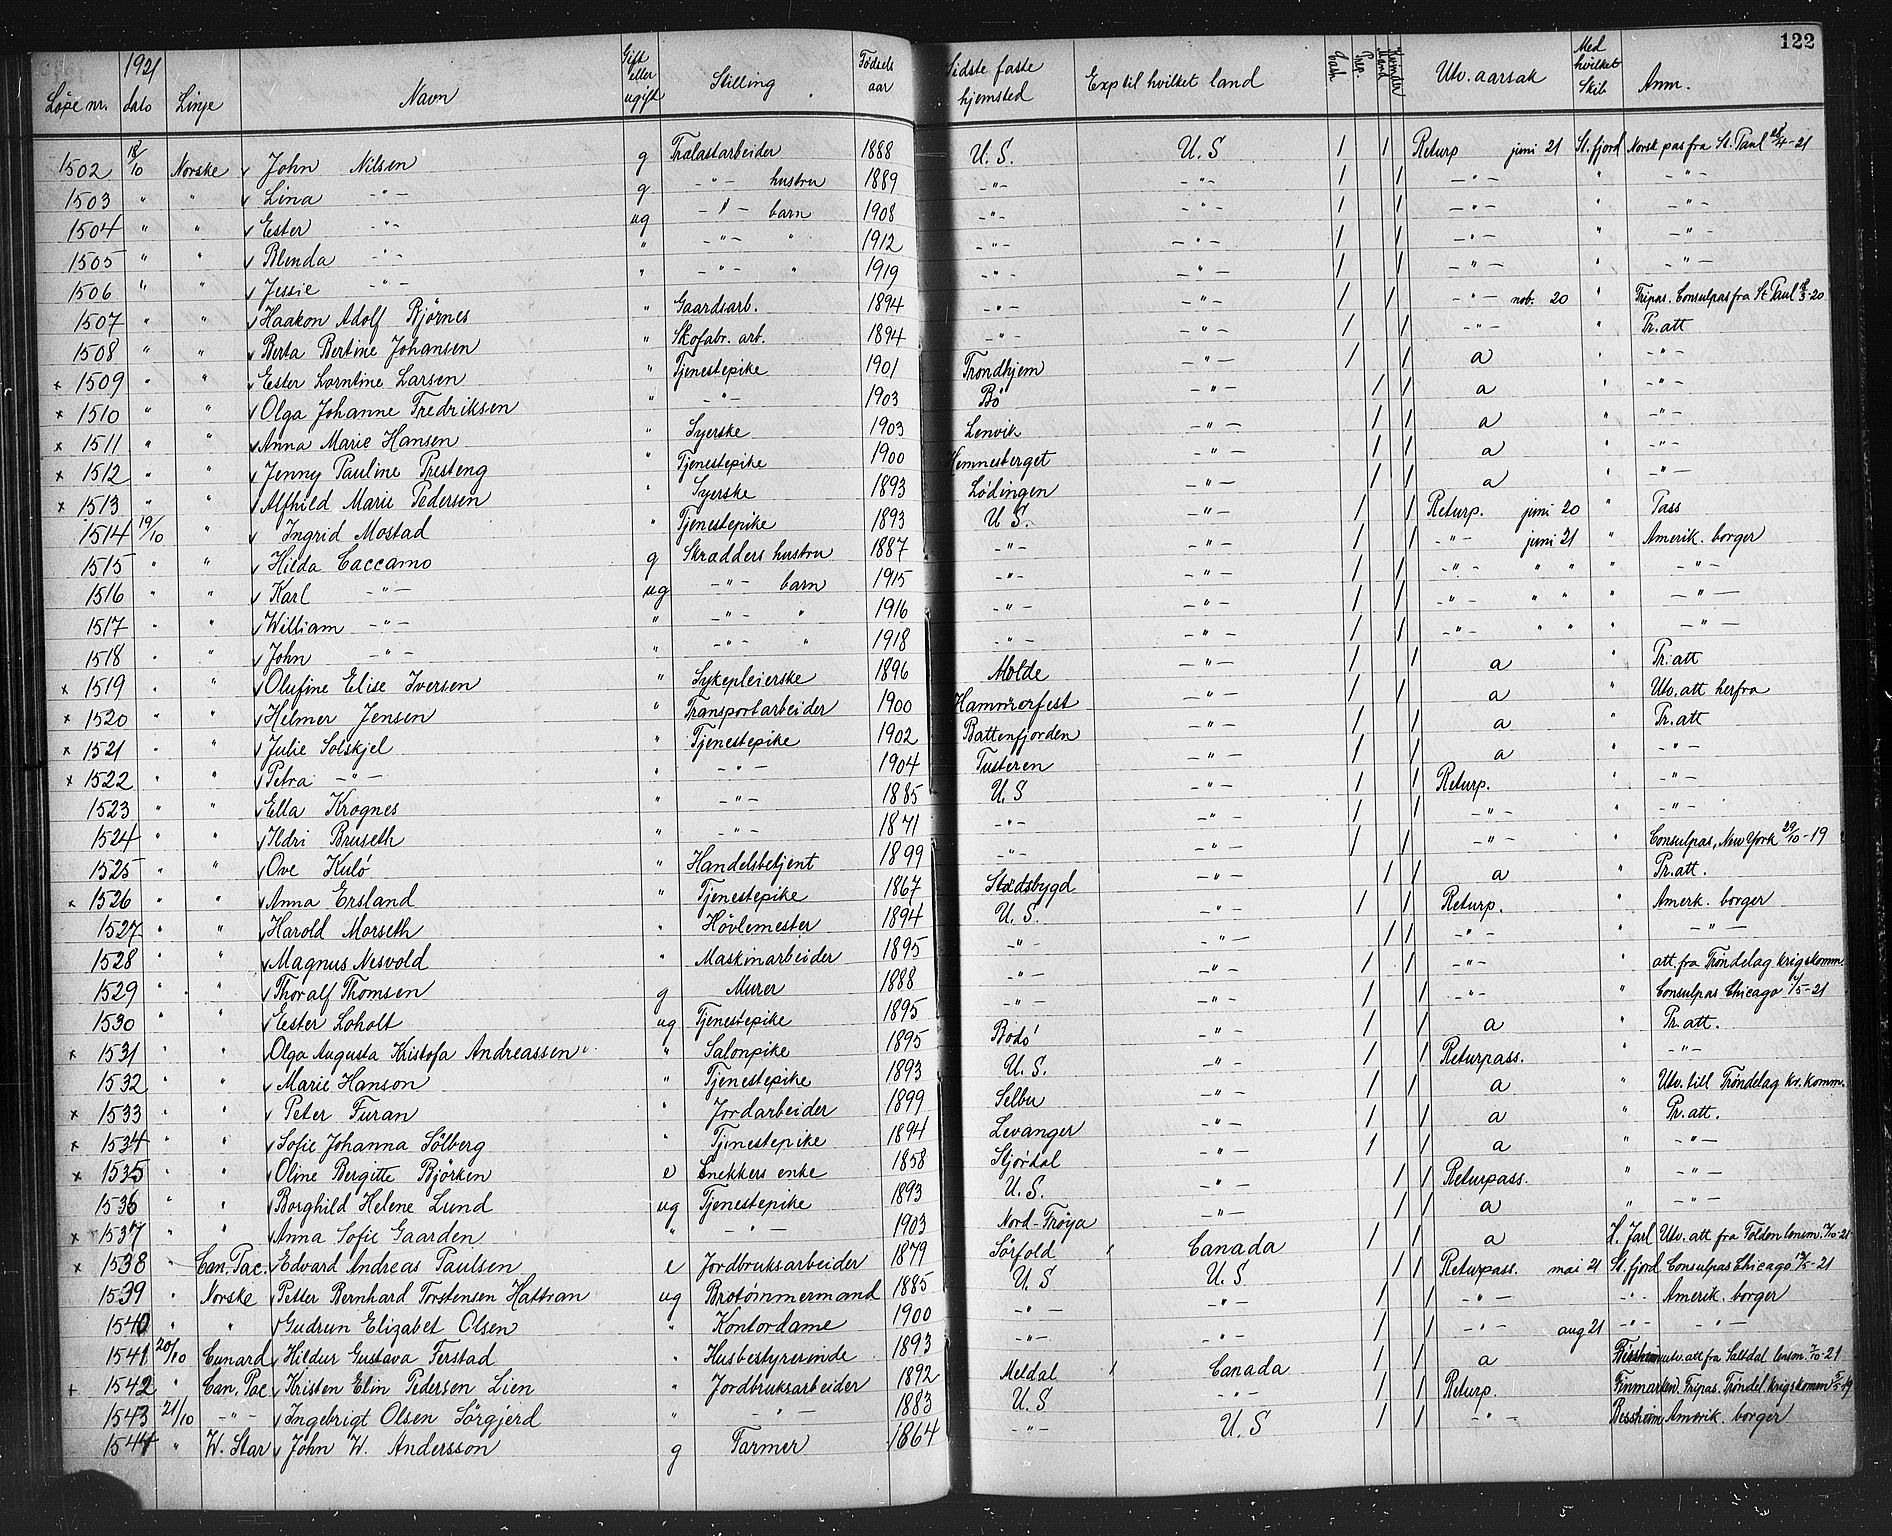 122
1921
Löpe nr. dato Linje Navn Gift eller ugift Stilling Födsels aar Sidste faste hjemsted Exp til hvilket land Cash Prep. Mænd Kvinder Utv. aarsak Med hvilket Skib Anm.
1502 18/10 Norske v John Nilsen g Trælastarbeider 1888 U.S. U.S 1 1 Returp juni 21 St.fjord Norsk pas fra St. Paul 28/4-21
1503 " " v Lina -"- g -"- hustru 1889 -"- -"- 1 1 -"- " -"-
1504 " " v Ester -"- ug -"- barn 1908 -"- -"- 1 1 -"- " -"-
1505 " " v Blenda -"- " -"- " 1912 -"- -"- 1 1 -"- " -"-
1506 " " v Jessie -"- " -"- " 1919 -"- -"- 1 1 -"- " -"-
1507 " " v Haakon Adolf Björnes " Gaardsarb. 1894 -"- -"- 1 1 -"- nov. 20 " Tripas. Consulpas fra St Paul -20
1508 " " v Berta Bertine Johansen " Skofabr. arb. 1894 -"- -"- 1 1 -"- " Pr. att
x 1509 " " v Ester Lorntine Larsen " Tjenestepike 1901 Trondhjem -"- 1 1 a " -"-
x 1510 " " v Olga Johanne Fredriksen " -"- 1903 Bö -"- 1 1 a " -"-
x 1511 " " v Anna Marie Hansen " Syerske 1903 Lenvik -"- 1 1 a " -"-
x 1512 " " v Jenny Pauline Presteng " Tjenestepike 1900 Hemnesberget -"- 1 1 a " -"-
x 1513 " " v Alfhild Marie Pedersen " Syerske 1893 Lödingen -"- 1 1 a " -"-
1514 19/10 " v Ingrid Mostad " Tjenestepike 1893 U.S. -"- 1 1 Returp. juni 20 " Pass
1515 " " v Hilda Caccamo g Skrædders hustru 1887 -"- -"- 1 1 -"- juni 21 " Amerik. borger
1516 " " v Karl -"- ug -"- barn 1915 -"- -"- 1 1 -"- " " " -"-
1517 " " v William -"- " -"- " 1916 -"- -"- 1 1 -"- " " " -"-
1518 " " v John -"- " -"- " 1918 -"- -"- 1 1 -"- " " " -"-
x 1519 " " v Olufine Elise Iversen " Sykepleierske 1896 Molde -"- 1 1 a " Pr. att
x 1520 " " v Helmer Jensen " Transportarbeider 1900 Hammerfest -"- 1 1 a " Utv. att herfra
x 1521 " " v Julie Solskjel " Tjenestepike 1902 Battenfjorden -"- 1 1 a " Pr. att
x 1522 " " v Petra -"- " -"- 1904 Tusteren -"- 1 1 a " -"-
1523 " " v Ella Krognes " -"- 1885 U.S -"- 1 1 Returp. " -"-
1524 " " v Ildri Bruseth " -"- 1871 -"- -"- 1 1 -"- " -"-
1525 " " v Ove Kulö " Handelsbetjent 1899 -"- -"- 1 1 -"- " Consulpas, New York 29/10-19
x 1526 " " v Anna Ersland " Tjenestepike 1867 Stadsbygd -"- 1 1 a " Pr. att.
1527 " " v Harold Morseth " Hövlemester 1894 U.S. -"- 1 1 Returp. " Amerk. borger
1528 " " v Magnus Nesvold " Maskinarbeider 1895 -"- -"- 1 1 -"- " -"-
1529 " " v Thoralf Thomsen g Murer 1888 -"- -"- 1 1 -"- att. fra Tröndelag krigskomm.
1530 " " v Ester Loholt ug Tjenestepike 1895 -"- -"- 1 1 -"- " Consulpas Chicago /5-21
x 1531 " " v Olga Augusta Kristofa Andreassen " Salonpike 1895 Bodö -"- 1 1 a " Pr. att.
1532 " " v Marie Hanson " Tjenestepike 1893 U.S. -"- 1 1 Returpass. " -"-
x 1533 " " v Peter Furan " Jordarbeider 1899 Selbu -"- 1 1 a " Utv. till Tröndelag kr. komm.
x 1534 " " v Sofie Johanna Sölberg " Tjenestepike 1894 Levanger -"- 1 1 a " Pr. att.
x 1535 " " v Oline Bergitte Björken e Snekkers enke 1858 Stjördal -"- 1 1 a " -"-
1536 " " v Borghild Helene Lund ug Tjenestepike 1893 U.S. -"- 1 1 Returpass. " -"-
x 1537 " " v Anna Sofie Gaarden " -"- 1903 Nord-Fröya -"- 1 1 a " -"-
x 1538 " Can. Pac. v Edvard Andreas Paulsen e Jordbruksarbeider 1879 Sörfold Canada 1 1 a H. Jarl Utv. att fra Folden lensm. /10-21
1539 " Norske v Petter Bernhard Torstensen Hattran ug Brotømmermand 1885 U.S U.S 1 1 Returpass. mai 21 St.fjord Consulpas Chicago /5-21
1540 " " v Gudrun Elizabet Olsen " Kontordame 1900 -"- -"- 1 1 -"- -"- Amerik. borger
1541 20/10 Cunard v Hildur Gustava Ferstad " Husbestyrerinde 1893 -"- -"- 1 1 -"- aug 21 -"- -"-
+ 1542 " Can. Pac v Kristen Elin Pedersen Lien " Jordbruksarbeider 1892 Meldal Canada 1 1 a utv. att fra Saltdal lensm. /10-21
1543 21/10 -"- v Ingebrigt Olsen Sörgjerd " -"- 1883 U.S -"- 1 1 Returp. Finmarken Tripas. Tröndel. krigskomm -19
1544 " W. Star v John W. Andersson g Farmer 1864 -"- U.S 1 1 -"- Bessheim Amerik. borger